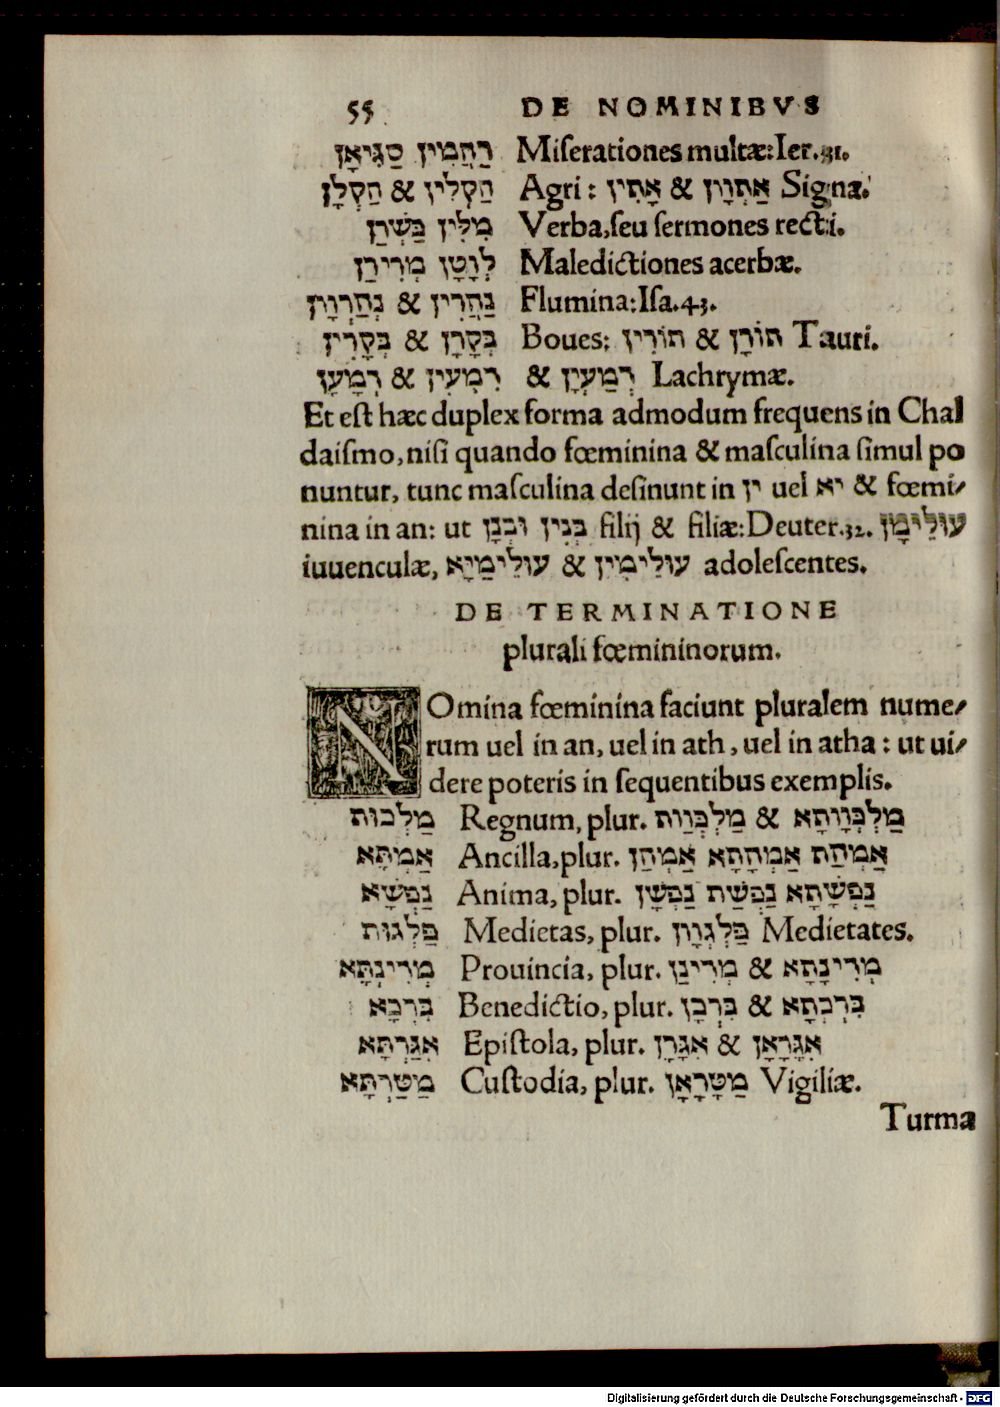 55 DE NOMINIBVS
רַחֲמִין סַגִּיאָן Miſerationes multæ: Ier.31.
חַקְלִין & חַקְלָן Agri: אָתִין & אַתְוָן Signa.
מִלִּין כַּשְׁרַן Verba, ſeu ſermones recti.
לְוָטָן מְרִירַן Maledictiones acerbæ.
נַהֲרִין & נְהַרְוָון Flumina: Iſa.43.
בְּקָרָן & בְּקָרִין Boues: תּוֹרִין & תּוֹרָן Tauri.
דִּמְעִין & דִּמְעָן & דְמַעְיָן Lachrymæ.
Et eſt hæc duplex forma admodum frequens in Chal
daiſmo, niſi quando fœminina & maſculina ſimul po
nuntur, tunc maſculina deſinunt in ין uel יא & fœmi⸗
nina in an: ut בְּנִין וּבְנָן filij & filiæ: Deuter.32. עוּלֵימָן
iuuenculæ, עוּלֵימִין & עוּלֵימַיָּא adoleſcentes.
DE TERMINATIONE
plurali fœmininorum.
NOmina fœminina faciunt pluralem nume⸗
rum uel in an, uel in ath, uel in atha: ut ui⸗
dere poteris in ſequentibus exemplis.
מַלְכוּת Regnum, plur. מַלְכְּוַות & מַלְכְּוָותָא
אַמְתָא Ancilla, plur. אַמְהַן אַמְהָתָא אַמְהַת
נַפְשָׁא Anima, plur. נַפְשָׁן נַפְשַׁת נַפְשָׁתָא
פַּלְגוּת Medietas, plur. פַּלְגְוָון Medietates.
מְדִינְתָּא Prouincia, plur. מְדִינַן & מְדִינָתָא
בִּרְכָא Benedictio, plur. בִּרְכָן & בִּרְכָתָא
אִגַּרְתָּא Epiſtola, plur. אִגָּרָן & אִגָּרָאָן
מַטַּרְתָּא Cuſtodia, plur. מַטָּרָאָן Vigiliæ.
Turma
Digitalisierung gefördert durch die Deutsche Forschungsgemeinschaft - DFG